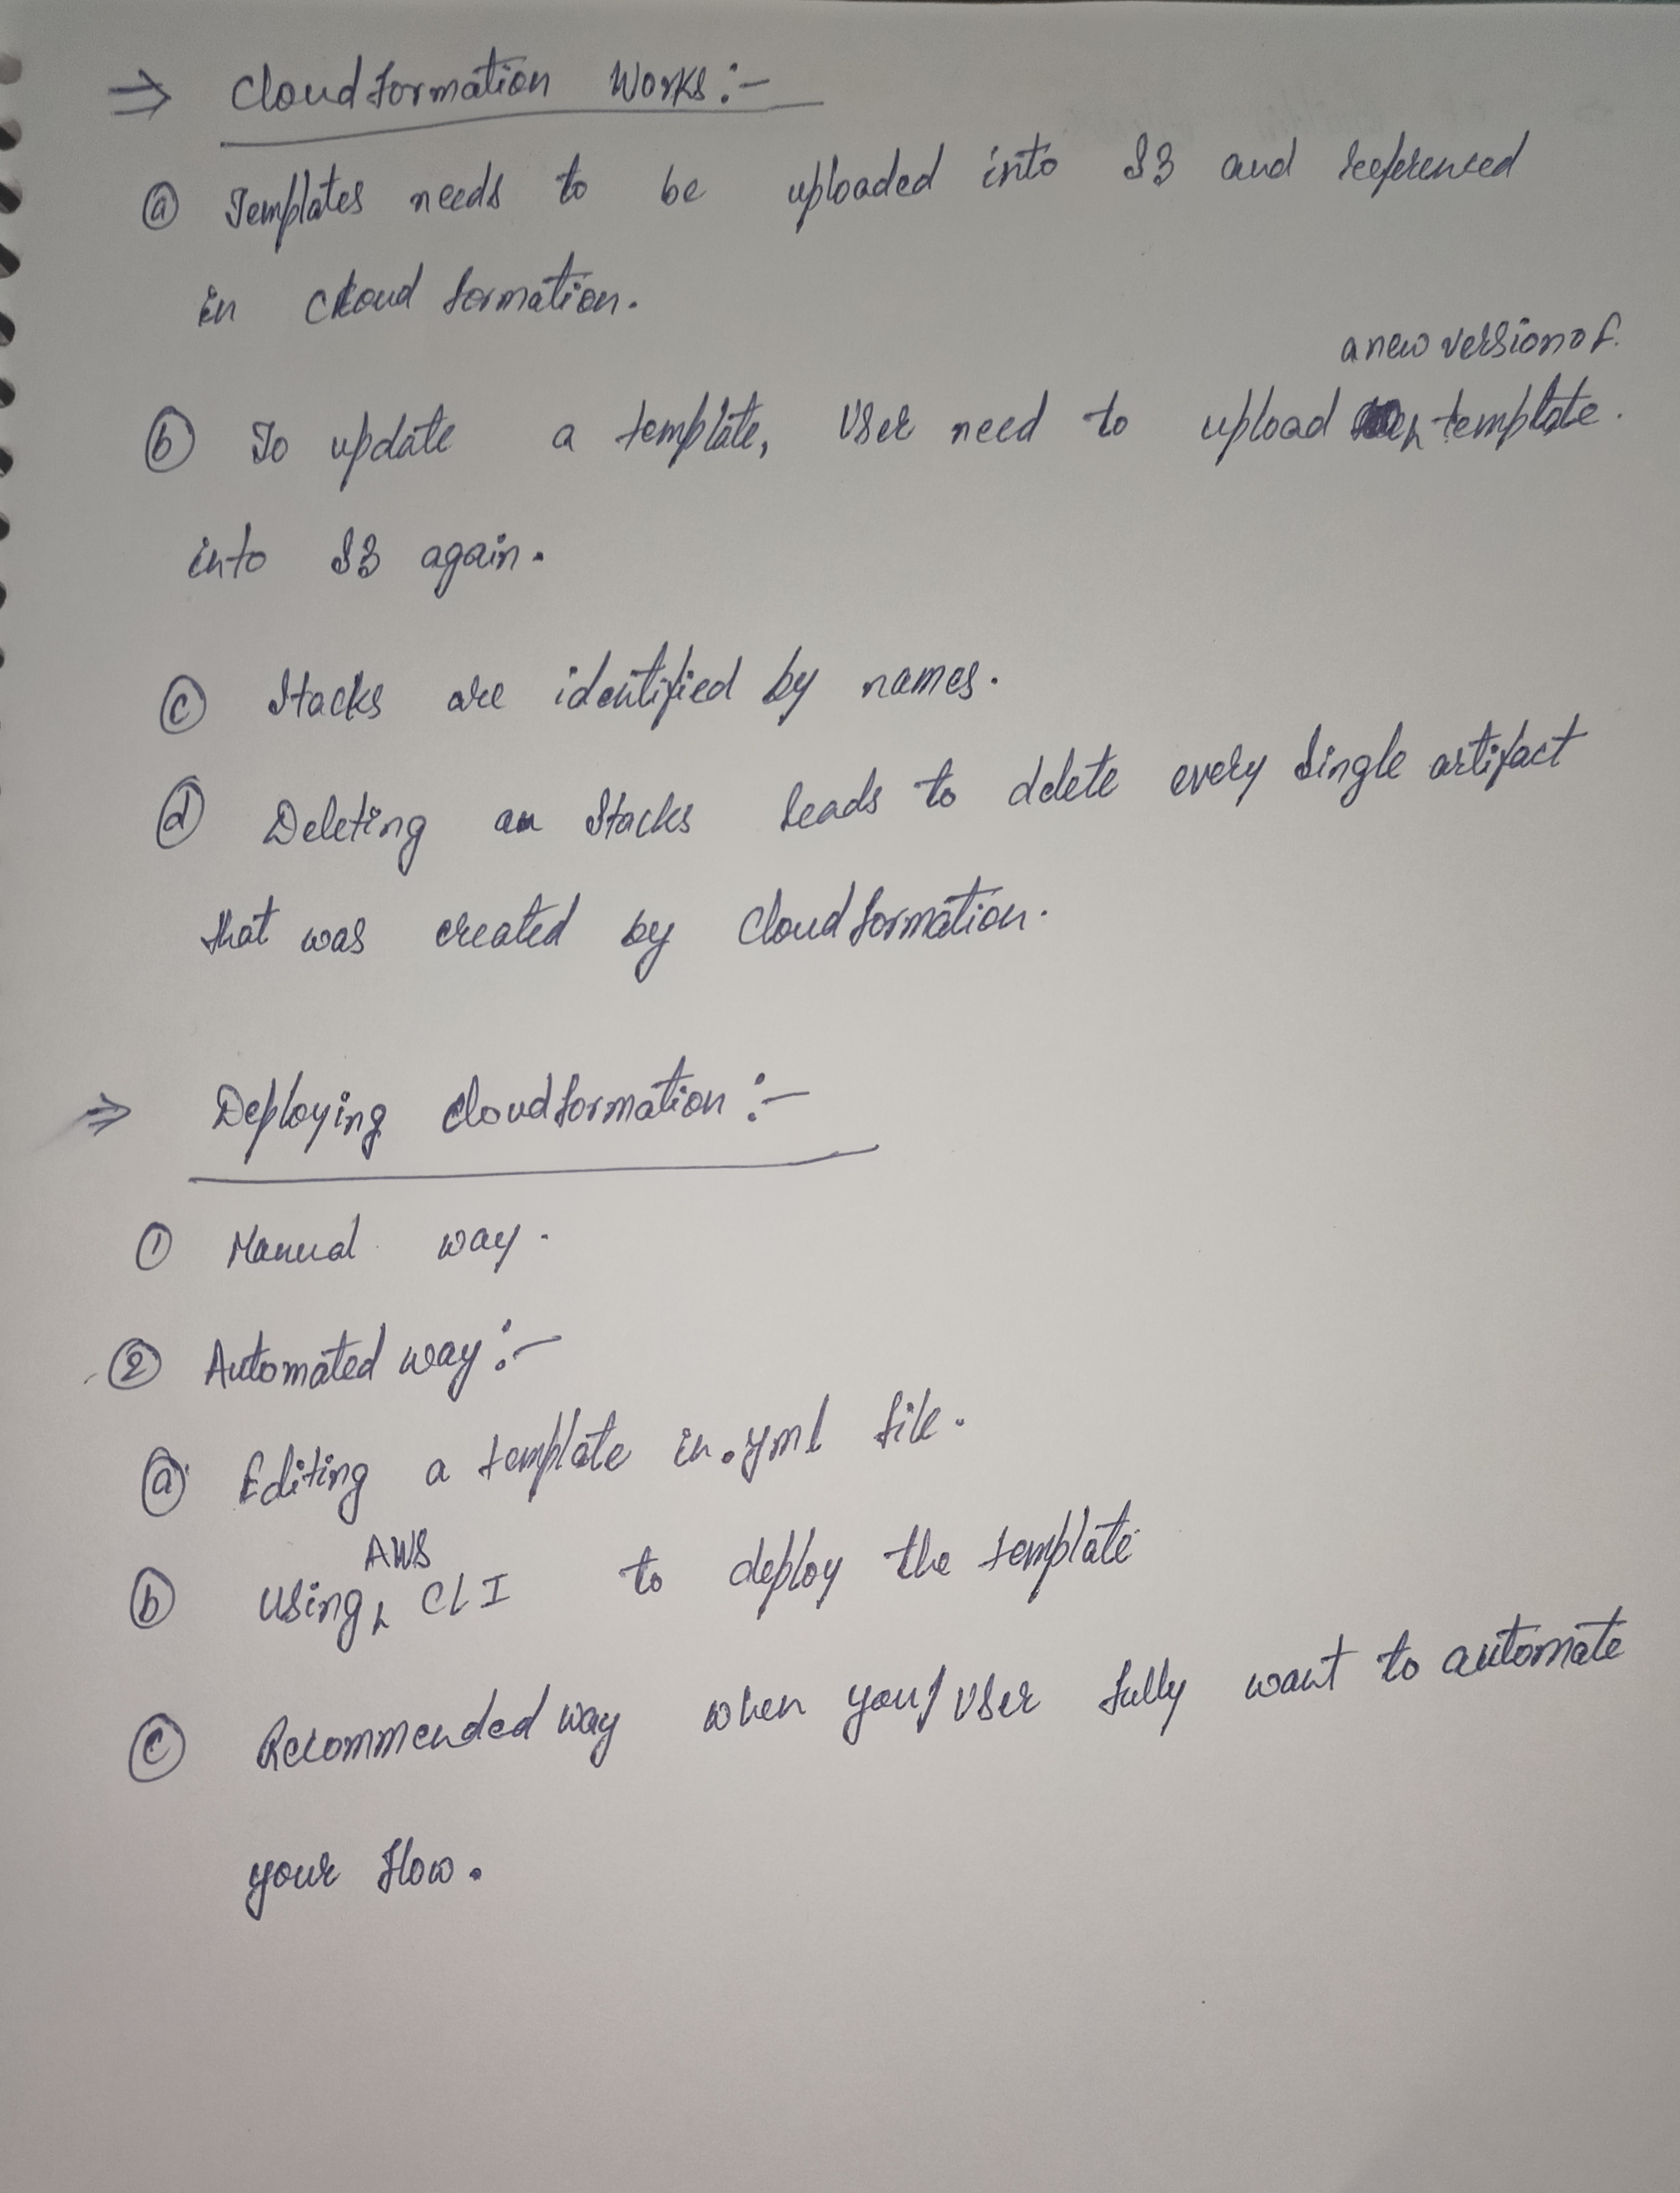 ⇒ Cloudformation Works:-
ⓐ Templates needs to be uploaded into S3 and referenced
in Cloudformation.
a new version of
ⓑ To update a template, User need to upload template.
into S3 again.
ⓒ Stacks are identified by names.
ⓓ Deleting an Stacks leads to delete every single artifact
that was created by Cloudformation.
⇒ Deploying Cloudformation:-
① Manual way.
② Automated way:-
ⓐ Editing a template in .yml file.
AWS
ⓑ Using CLI to deploy the template
ⓒ Recommended way when you/User fully want to automate
your flow.